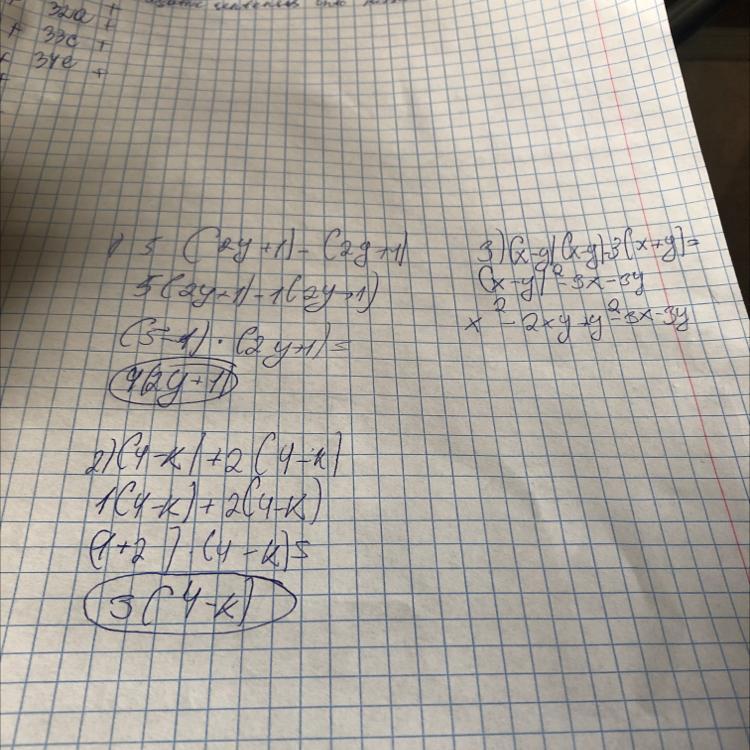 32a +
+ 33c +
+ 34c +
1) 5 (2y+1) - (2y+1)
5(2y+1)-1(2y+1)
(5-1)·(2y+1)=
4(2y+1)
2)(4-k)+2(4-k)
1(4-k)+2(4-k)
(1+2)·(4-k)=
3(4-k)
3)(x-y)(x-y)-3(x+y)=
(x-y)²-3x-3y
x²-2xy+y²-3x-3y